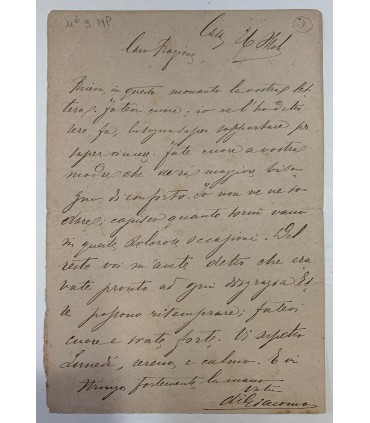 Nº 9 MP
Casa,
Caro
Ricevo in questo momento la vostra let
tera. Fatevi cuore; io ve l'ho detto
ieri fa, bisogna saper sopportare per
saper vincere. Fate cuore a vostra
madre che avrà maggior biso
gno di conforto. Io non ve ne so
dare; capisco quanto torni vano
in queste dolorose occasioni. Del
resto voi m'avete detto che era
vate pronto ad ogni disgrazia. Es
se possono ritemprare; fatevi
cuore e siate forte. Vi aspetto
Lunedì, sereno e calmo. E vi
stringo fortemente la mano
Vostro
diGiacomo